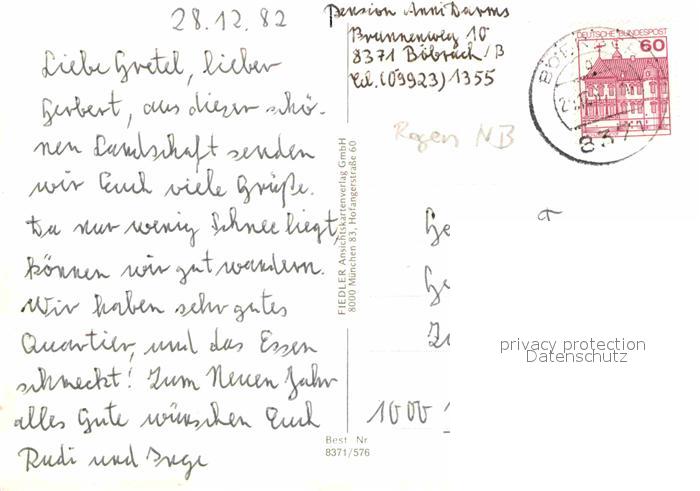 28.12.82
Pension Anni Darms
Brunnenweg 10
8371 Böbrach / B
Tel. (09923) 1355
DEUTSCHE BUNDESPOST
60
8371
Regen NB
Liebe Gretel, lieber
Herbert, aus dieser schö-
nen Landschaft senden
wir Euch viele Grüße.
Da nur wenig Schnee liegt,
können wir gut wandern.
Wir haben sehr gutes
Quartier, und das Essen
schmeckt! Zum Neuen Jahr
alles Gute wünschen Euch
Rudi und Inge
FIEDLER Ansichtskartenverlag GmbH
8000 München 83, Hofangerstraße 60
1000
privacy protection
Datenschutz
Best Nr
8371/576